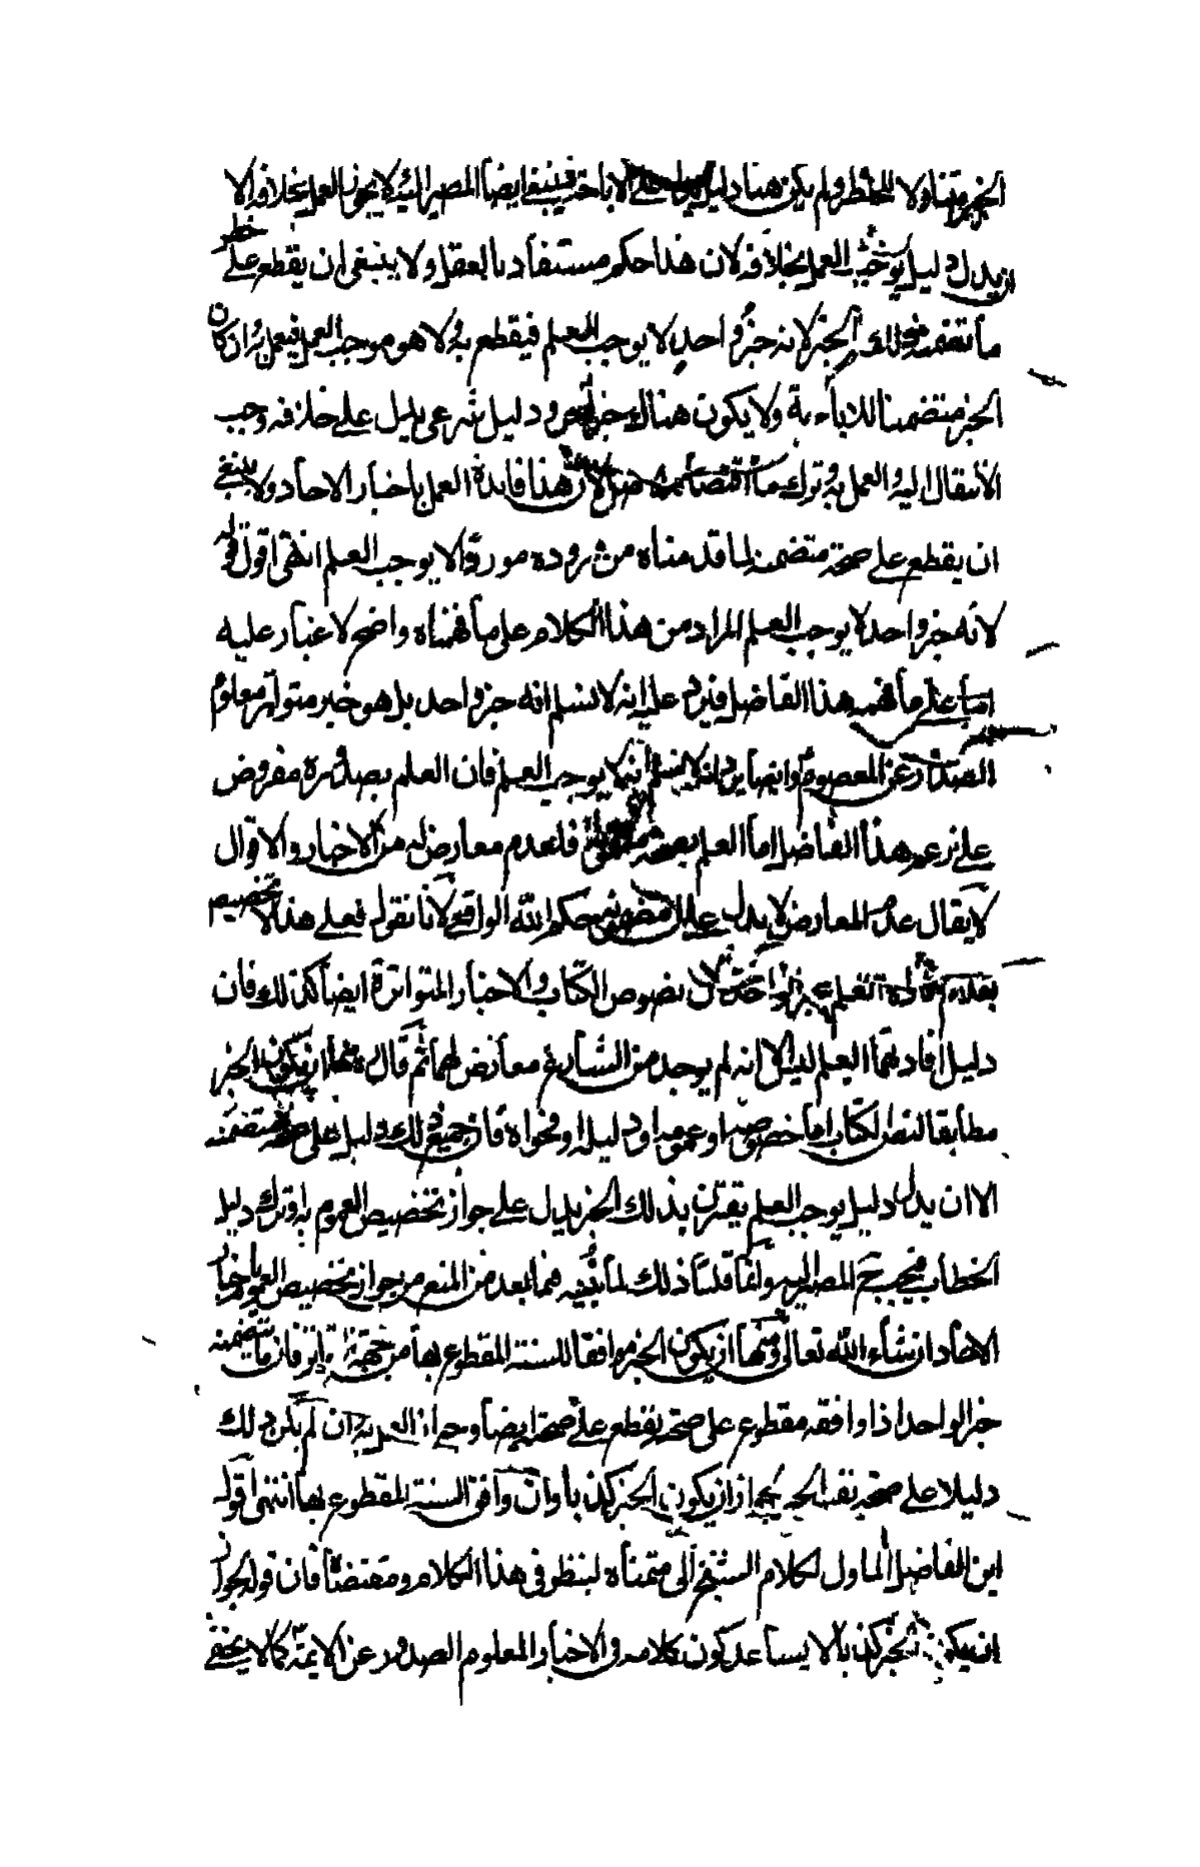 الخبر متناولا للحظر ولم يكن هناك دليل يدل على الاباحة فينبغي ايضا المصير اليه لا يجوز العمل بخلافه الا
ان يدل دليل يوجب العمل بخلافه لان هذا حكم مستفاد بالعقل ولا ينبغي ان يقطع على حظر
ما تضمنه ذلك الخبر لانه خبر واحد لا يوجب العلم فيقطع به ولا هو موجب العمل فيعمل به وان كان
الخبر متضمنا للاباحة ولا يكون هناك خبر اخر ودليل شرعي يدل على خلافه وجب
الانتقال اليه والعمل به وترك ما اقتضاه الاصل لان هذا فايدة العمل باخبار الاحاد ولا ينبغي
ان يقطع على صحة متضمنه لما قدمناه من وروده موردا لا يوجب العلم انتهى اقول قوله
لانه خبر واحد لا يوجب العلم المراد من هذا الكلام على ما فهمناه واضح لا غبار عليه
اما على ما فهمه هذا الفاضل فيرد عليه انه لا نسلم انه خبر واحد بل هو خبر متواتر معلوم
الصدور عن المعصوم وايضا يرد انه لا نسلم انه لا يوجب العلم فان العلم بصدوره مفروض
على زعم هذا الفاضل اما العلم بصحة فلعدم معارض له من الاخبار والاقوال
لا يقال عدم المعارض لا يدل على ان مضمونه حكم الله الواقعي لانا نقول فعلى هذا لا تخصيص
بعدم افادة العلم بخبر الواحد لان نصوص الكتاب والاخبار المتواترة ايضا كذلك فان
دليل افادتهما العلم ليس الا انه لم يوجد من الشارع معارض لهما ثم قال ومنها ان يكون الخبر
مطابقا لنص الكتاب اما خصوصه او عمومه او دليله او فحواه فان جميع ذلك دليل على صحة متضمنه
الا ان يدل دليل يوجب العلم يقترن بذلك الخبر يدل على جواز تخصيص العموم به او ترك دليل
الخطاب فيجب ح المصير اليه وانما قلنا ذلك لما نبينه فيما بعد من المنع من جواز تخصيص العموم باخبار
الاحاد ان شاء الله تعالى ومنها ان يكون الخبر موافقا للسنة المقطوع بها من جهة التواتر فان ما يتضمنه
خبر الواحد اذا وافقه مقطوع على صحته يقطع على صحته ايضا وجواز العمل به وان لم يكن ذلك
دليلا على صحة نفس الخبر لجواز ان يكون الخبر كذبا وان وافق السنة المقطوع بها انتهى اقول
اين الفاضل الماول لكلام الشيخ الى متمناه لينظر في هذا الكلام ومقتضاه فان قوله لجواز
ان يكون الخبر كذبا لا يساعد كون كلامه في الاخبار المعلوم الصدور عن الائمة كما لا يخفى